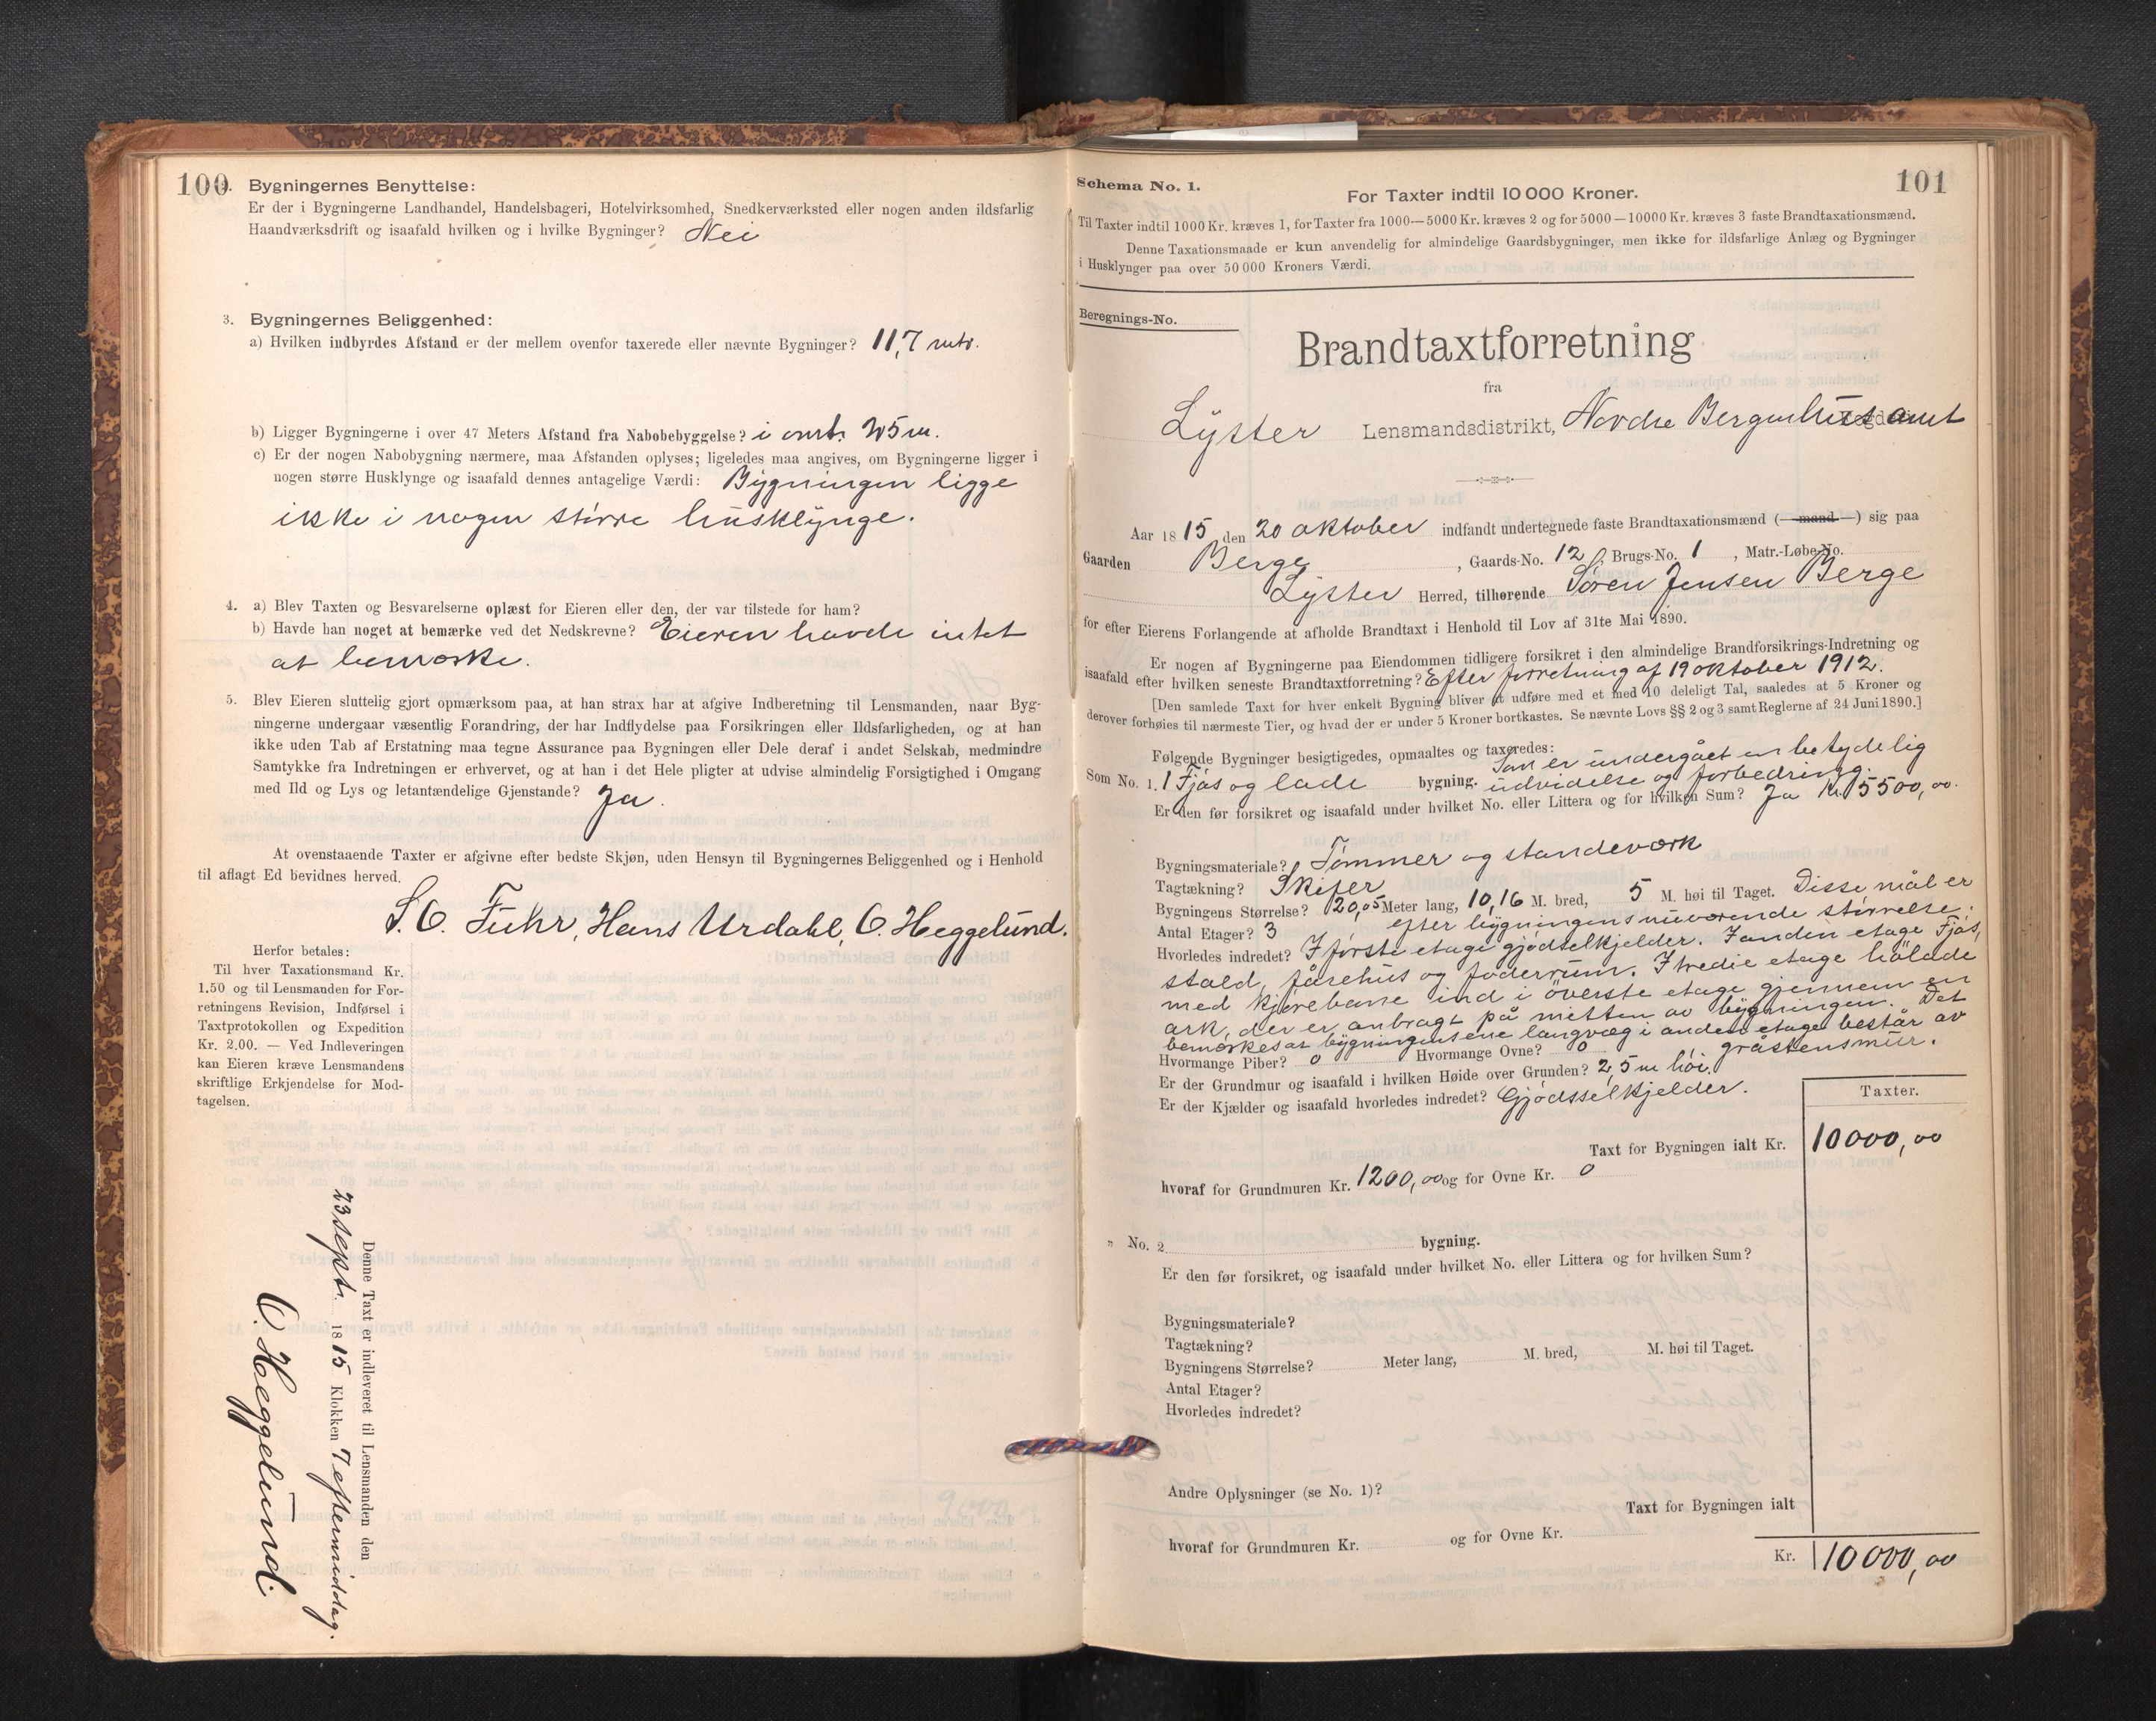 100
2. Bygningernes Benyttelse:
Er der i Bygningerne Landhandel, Handelsbageri, Hotelvirksomhed, Snedkerværksted eller nogen anden ildsfarlig
Haandværksdrift og isaafald hvilken og i hvilke Bygninger? Nei
3. Bygningernes Beliggenhed:
a) Hvilken indbyrdes Afstand er der mellem ovenfor taxerede eller nævnte Bygninger? 11,7 mtr.
b) Ligger Bygningerne i over 47 Meters Afstand fra Nabobebyggelse? i omtr. 25 m.
c) Er der nogen Nabobygning nærmere, maa Afstanden oplyses; ligeledes maa angives, om Bygningerne ligger i
nogen større Husklynge og isaafald dennes antagelige Værdi: Bygningen ligge
ikke i nogen større husklynge.
4. a) Blev Taxten og Besvarelserne oplæst for Eieren eller den, der var tilstede for ham?
b) Havde han noget at bemærke ved det Nedskrevne? Eieren havde intet
at bemærke.
5. Blev Eieren sluttelig gjort opmærksom paa, at han strax har at afgive Indberetning til Lensmanden, naar Byg-
ningerne undergaar væsentlig Forandring, der har Indflydelse paa Forsikringen eller Ildsfarligheden, og at han
ikke uden Tab af Erstatning maa tegne Assurance paa Bygningen eller Dele deraf i andet Selskab, medmindre
Samtykke fra Indretningen er erhvervet, og at han i det Hele pligter at udvise almindelig Forsigtighed i Omgang
med Ild og Lys og letantændelige Gjenstande? Ja.
At ovenstaaende Taxter er afgivne efter bedste Skjøn, uden Hensyn til Bygningernes Beliggenhed og i Henhold
til aflagt Ed bevidnes herved.
S. O. Fuhr, Hans Urdahl, O. Heggelund.
Herfor betales:
Til hver Taxationsmand Kr.
1.50 og til Lensmanden for For-
retningens Revision, Indførsel i
Taxtprotokollen og Expedition
Kr. 2.00. — Ved Indleveringen
kan Eieren kræve Lensmandens
skriftlige Erkjendelse for Mod-
tagelsen.
Denne Taxt er indleveret til Lensmanden den
23 Sept. 1815 Klokken 7 eftermiddag.
O. Heggelund.
101
Schema No. 1.
For Taxter indtil 10 000 Kroner.
Til Taxter indtil 1000 Kr. kræves 1, for Taxter fra 1000—5000 Kr. kræves 2 og for 5000—10000 Kr. kræves 3 faste Brandtaxationsmænd.
Denne Taxationsmaade er kun anvendelig for almindelige Gaardsbygninger, men ikke for ildsfarlige Anlæg og Bygninger
i Husklynger paa over 50 000 Kroners Værdi.
Beregnings-No.
Brandtaxtforretning
fra
Lyster Lensmandsdistrikt, Nordre Bergenhus amt
Aar 1815 den 20 oktober indfandt undertegnede faste Brandtaxationsmænd (—mand—) sig paa
Gaarden Berge, Gaards-No. 12, Brugs-No. 1, Matr.-Løbe-No.
Lyster Herred, tilhørende Søren Jensen Berge
for efter Eierens Forlangende at afholde Brandtaxt i Henhold til Lov af 31te Mai 1890.
Er nogen af Bygningerne paa Eiendommen tidligere forsikret i den almindelige Brandforsikrings-Indretning og
isaafald efter hvilken seneste Brandtaxtforretning? Efter forretning af 19 oktober 1912.
[Den samlede Taxt for hver enkelt Bygning bliver at udføre med et med 10 deleligt Tal, saaledes at 5 Kroner og
derover forhøies til nærmeste Tier, og hvad der er under 5 Kroner bortkastes. Se nævnte Lovs §§ 2 og 3 samt Reglerne af 24 Juni 1890.]
Følgende Bygninger besigtigedes, opmaaltes og taxeredes: Som er undergået en betydelig
Som No. 1. 1 Fjøs og lade bygning. udvidelse og forbedring.
Er den før forsikret og isaafald under hvilket No. eller Littera og for hvilken Sum? Ja Kr. 5500,00.
Bygningsmateriale? Tømmer og standeværk
Tagtækning? Skifer
Bygningens Størrelse? 20,05 Meter lang, 10,16 M. bred, 5 M. høi til Taget. Disse mål er
Antal Etager? 3 efter bygningens nuværende størrelse.
Hvorledes indredet? I første etage gjødselkjelder. I anden etage Fjøs,
stald, fårehus og foderrum. I tredie etage høladde
med kjørebane ind i øverste etage gjennem en
ark, der er anbragt på mitten av bygningen. Det
bemærkes at bygningens ene langvæg i anden etage består av
Hvormange Piber? 0 Hvormange Ovne? 0 gråstensmur.
Er der Grundmur og isaafald i hvilken Høide over Grunden? 2,5 m høi.
Er der Kjælder og isaafald hvorledes indredet? Gjødsselkjelder.
Taxter.
Taxt for Bygningen ialt Kr. 10000,00
hvoraf for Grundmuren Kr. 1200,00 og for Ovne Kr. 0
" No. 2 bygning.
Er den før forsikret, og isaafald under hvilket No. eller Littera og for hvilken Sum?
Bygningsmateriale?
Tagtækning?
Bygningens Størrelse? Meter lang, M. bred, M. høi til Taget.
Antal Etager?
Hvorledes indredet?
Andre Oplysninger (se No. 1)?
Taxt for Bygningen ialt
hvoraf for Grundmuren Kr. og for Ovne Kr.
Kr. 10000,00